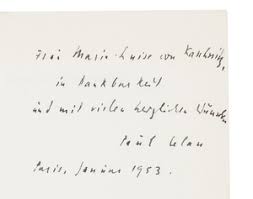 Frau Marie-Luise von Kaschnitz,
in Dankbarkeit
und mit vielen herzlichen Wünschen
Paul Celan
Paris, Januar 1953.